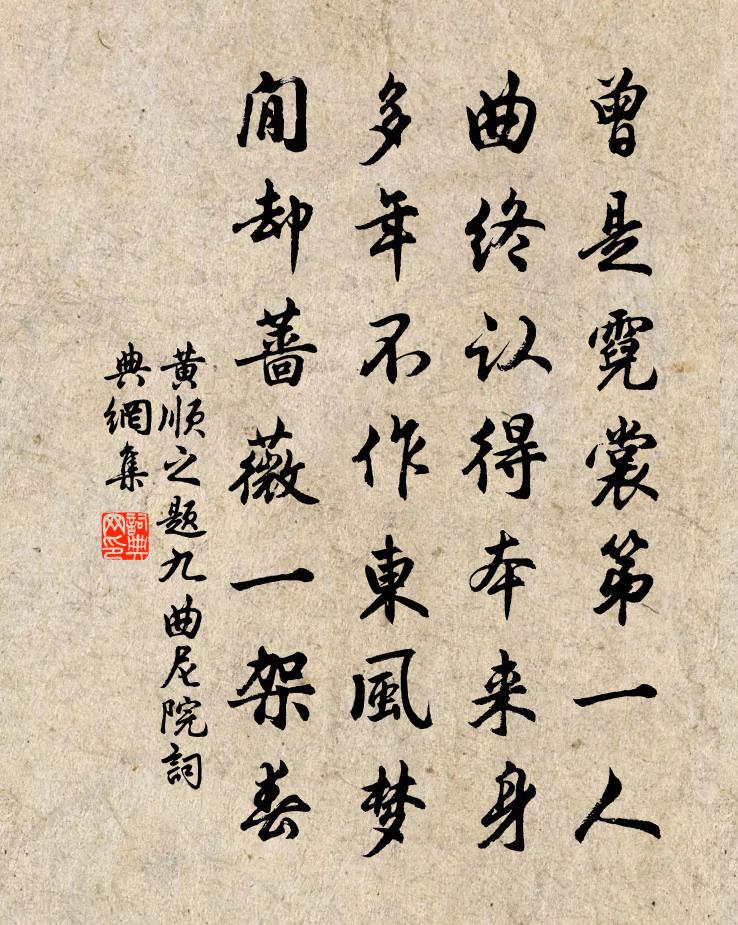 曾是霓裳第一人
曲终认得本来身
多年不作東風梦
閒却蔷薇一架春
黄順之题九曲尼院詞
典網集
詞典網印